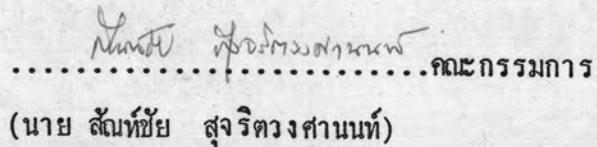 สัณห์ชัย สุจริตวงศานนท์
..............................คณะกรรมการ
(นาย สัณห์ชัย สุจริตวงศานนท์)